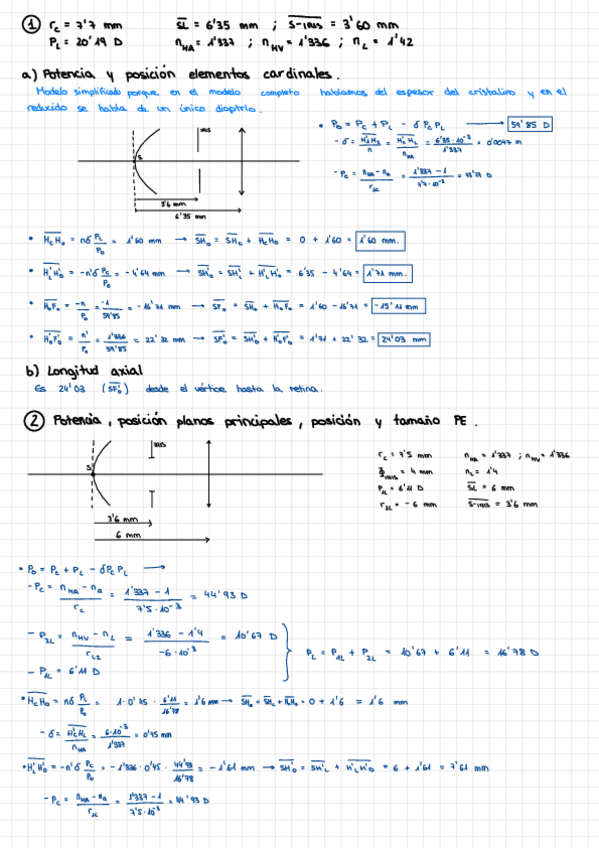 ① rc = 7'7 mm   SL = 6'35 mm ; S-IRIS = 3'60 mm
PL = 20'19 D   nHA = 1'337 ; nHV = 1'336 ; nL = 1'42
a) Potencia y posición elementos cardinales.
Modelo simplificado porque en el modelo completo hablamos del espesor del cristalino y en el
reducido se habla de un único dioptrio.
• Po = Pc + PL - δPcPL → 59'85 D
- δ = H'cHL/n = H'cHL/nHA = 6'35·10⁻³/1'337 = 0'0047 m
- Pc = nHA - na/r1c = 1'337 - 1/7'7·10⁻³ = 43'77 D
IRIS
S
3'6 mm
6'35 mm
• HcHo = nδ PL/Po = 1'60 mm → SHo = SHc + HcHo = 0 + 1'60 = 1'60 mm.
• H'LH'o = -n'δ Pc/Po = -4'64 mm → SH'o = SH'L + H'LH'o = 6'35 - 4'64 = 1'71 mm.
• HoFo = -n/Po = -1/59'85 = -16'71 mm → SFo = SHo + HoFo = 1'60 - 16'71 = -15'11 mm
• H'oF'o = n'/Po = 1'336/59'85 = 22'32 mm → SF'o = SH'o + H'oF'o = 1'71 + 22'32 = 24'03 mm
b) Longitud axial
Es 24'03 (SF'o) desde el vértice hasta la retina.
② Potencia, posición planos principales, posición y tamaño PE.
IRIS
S
3'6 mm
6 mm
rc = 7'5 mm   nHA = 1'337 ; nHV = 1'336
ΦIRIS = 4 mm   nL = 1'4
P1L = 6'11 D   SL = 6 mm
r2L = -6 mm   S-IRIS = 3'6 mm
• Po = Pc + PL - δPcPL →
- Pc = nHA - na/rc = 1'337 - 1/7'5·10⁻³ = 44'93 D
- P2L = nHV - nL/rL2 = 1'336 - 1'4/-6·10⁻³ = 10'67 D
- P1L = 6'11 D
PL = P1L + P2L = 10'67 + 6'11 = 16'78 D
• HcHo = nδ PL/Po = 1·0'45 · 6'11/16'78 = 1'6 mm → SHo = SHc + HcHo = 0 + 1'6 = 1'6 mm
- δ = H'cHL/nHA = 6·10⁻³/1'337 = 0'45 mm
• H'LH'o = -n'δ Pc/Po = -1'336 · 0'45 · 44'93/16'78 = -1'61 mm → SH'o = SH'L + H'LH'o = 6 + 1'61 = 7'61 mm
- Pc = nHA - na/r1c = 1'337 - 1/7'5·10⁻³ = 44'93 D